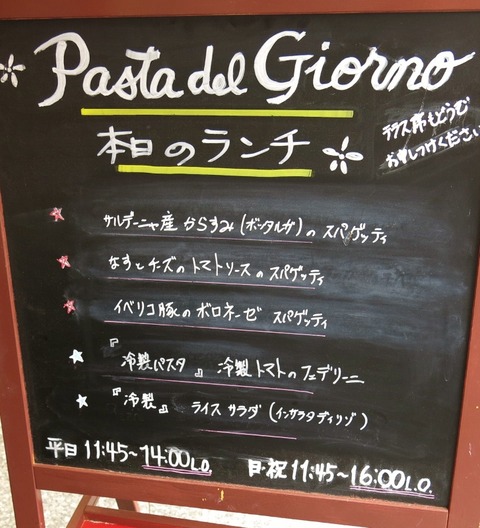 Pasta del Giorno
本日のランチ
テラス席もどうぞ
お申しつけください
サルデーニャ産 からすみ (ボッタルガ) の スパゲッティ
なすとチーズの トマトソースの スパゲッティ
イベリコ豚の ボロネーゼ スパゲッティ
『冷製パスタ』 冷製トマトのフェデリーニ
『冷製』 ライス サラダ (インサラタ ディ リゾ)
平日 11:45~14:00 L.O. 日・祝 11:45~16:00 L.O.